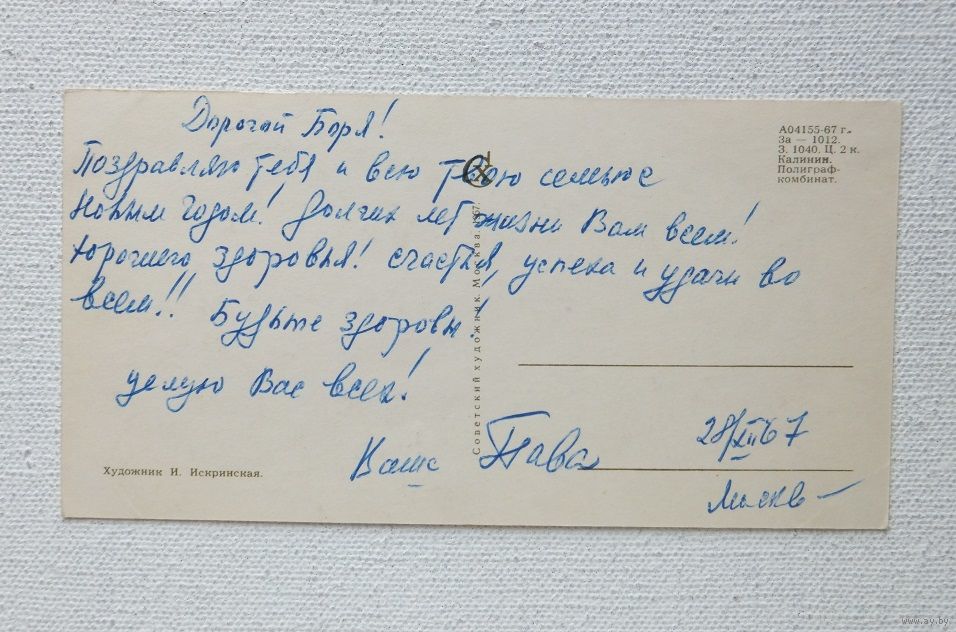 Дорогой Боря!
Поздравляю тебя и всю твою семью с
Новым годом! Долгих лет жизни Вам всем!
Хорошего здоровья! счастья, успеха и удачи во
всем!! Будьте здоровы!
целую Вас всех!
Ваша Пава
28/XII 67
Москва
А04155-67 г.
За — 1012.
З. 1040. Ц. 2 к.
Калинин.
Полиграф-
комбинат.
Советский художник. Москва. 1967.
Художник И. Искринская.
www.ay.by